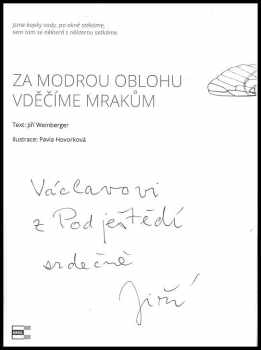 Jsme kapky vody, po okně stékáme,
sem tam se některá s některou setkáme.
ZA MODROU OBLOHU
VDĚČÍME MRAKŮM
Text: Jiří Weinberger
Ilustrace: Pavla Hovorková
Václavovi
z Podještědí
srdečně
Jiří